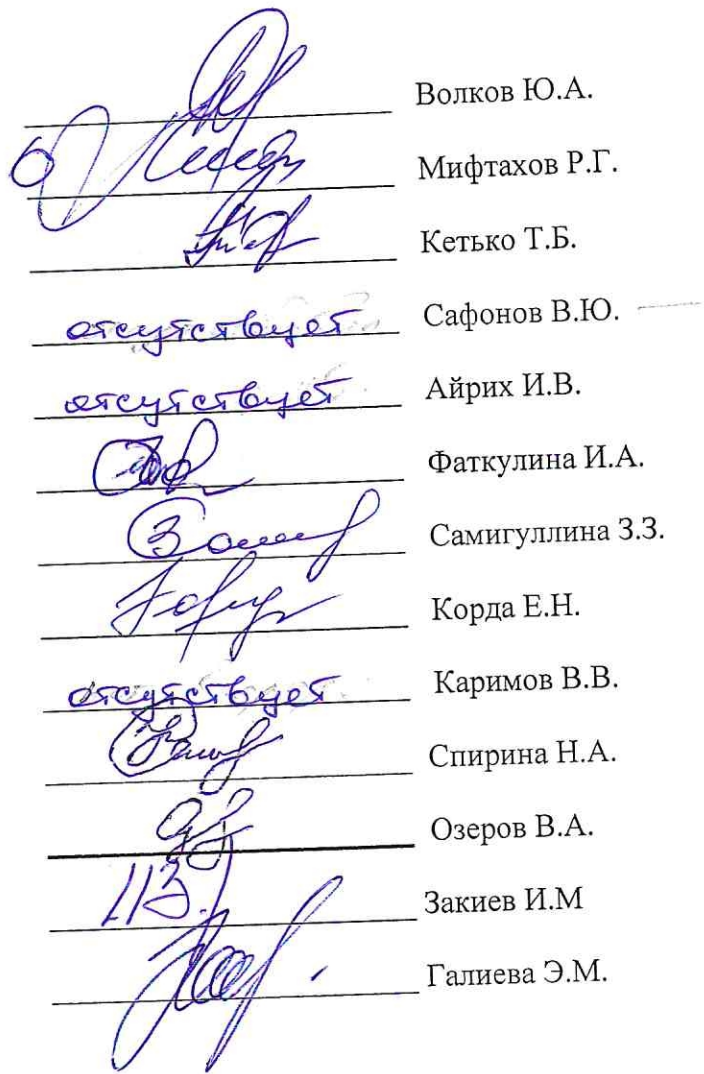 Волков Ю.А.
Мифтахов Р.Г.
Кетько Т.Б.
отсутствует Сафонов В.Ю.
отсутствует Айрих И.В.
Фаткулина И.А.
Самигуллина З.З.
Корда Е.Н.
отсутствует Каримов В.В.
Спирина Н.А.
Озеров В.А.
Закиев И.М
Галиева Э.М.